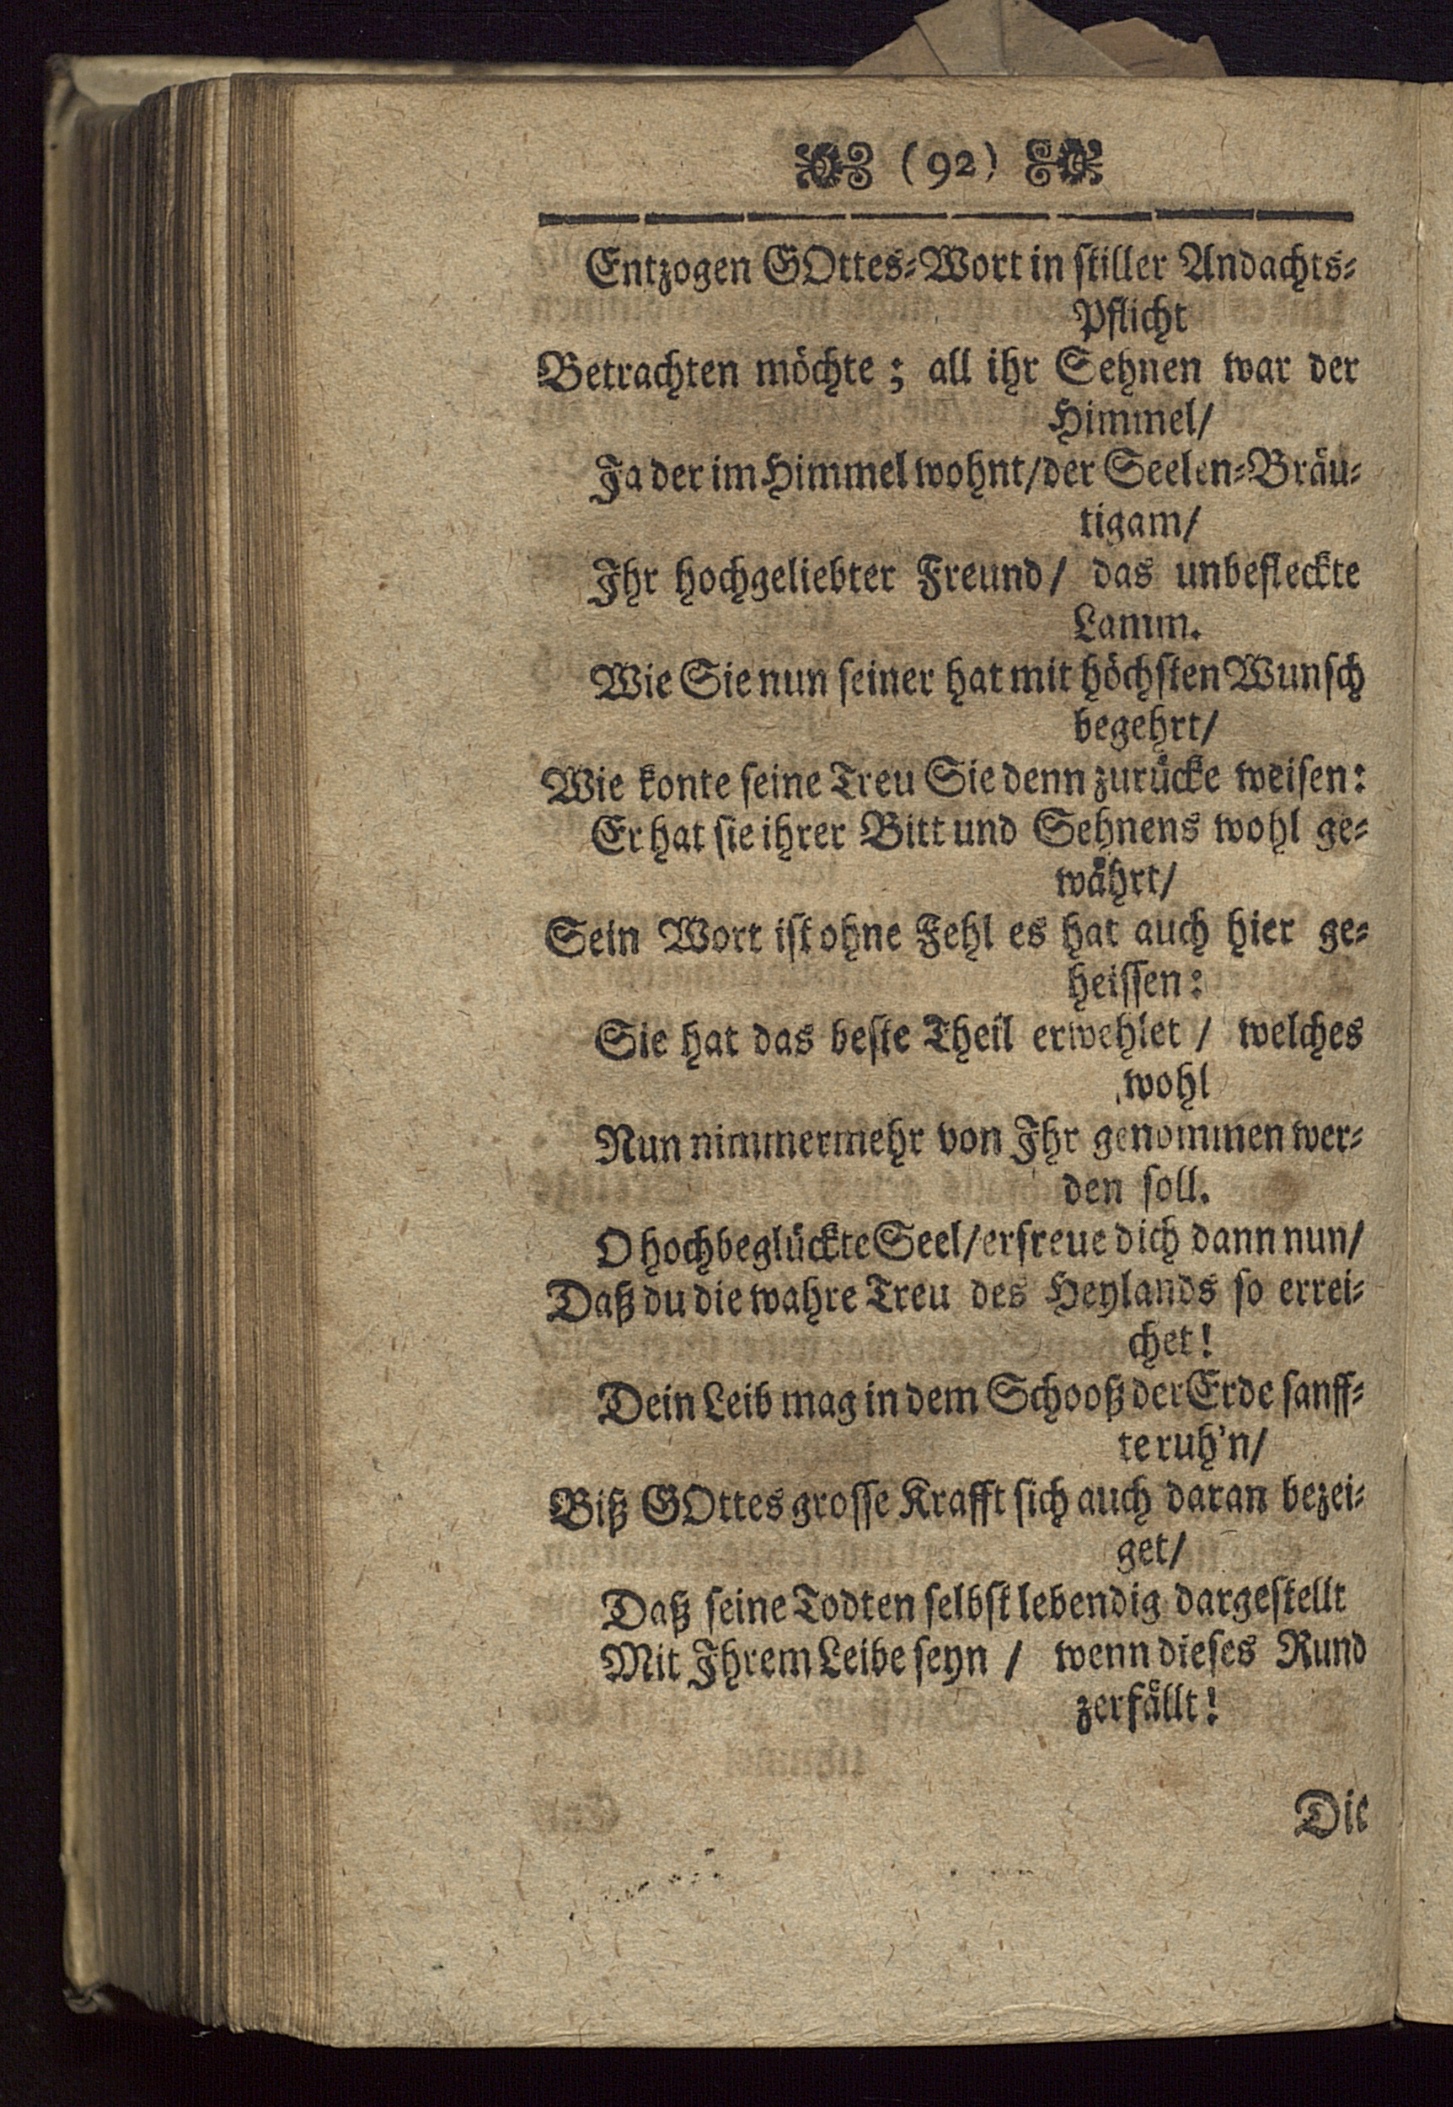 (92)
Entzogen GOttes-Wort in stiller Andachts-
Pflicht
Betrachten möchte; all ihr Sehnen war der
Himmel/
Ja der im Himmel wohnt/der Seelen-Bräu-
tigam/
Ihr hochgeliebter Freund/ das unbefleckte
Lamm.
Wie Sie nun seiner hat mit höchsten Wunsch
begehrt/
Wie konte seine Treu Sie denn zurücke weisen:
Er hat sie ihrer Bitt und Sehnens wohl ge-
währt/
Sein Wort ist ohne Fehl es hat auch hier ge-
heissen:
Sie hat das beste Theil erwehlet / welches
wohl
Nun nimmermehr von Ihr genommen wer-
den soll.
O hochbeglückte Seel/erfreue dich dann nun/
Daß du die wahre Treu des Heylands so errei-
chet!
Dein Leib mag in dem Schooß der Erde sanff-
te ruh'n/
Biß GOttes grosse Krafft sich auch daran bezei-
get/
Daß seine Todten selbst lebendig dargestellt
Mit Ihrem Leibe seyn / wenn dieses Rund
zerfällt!
Die